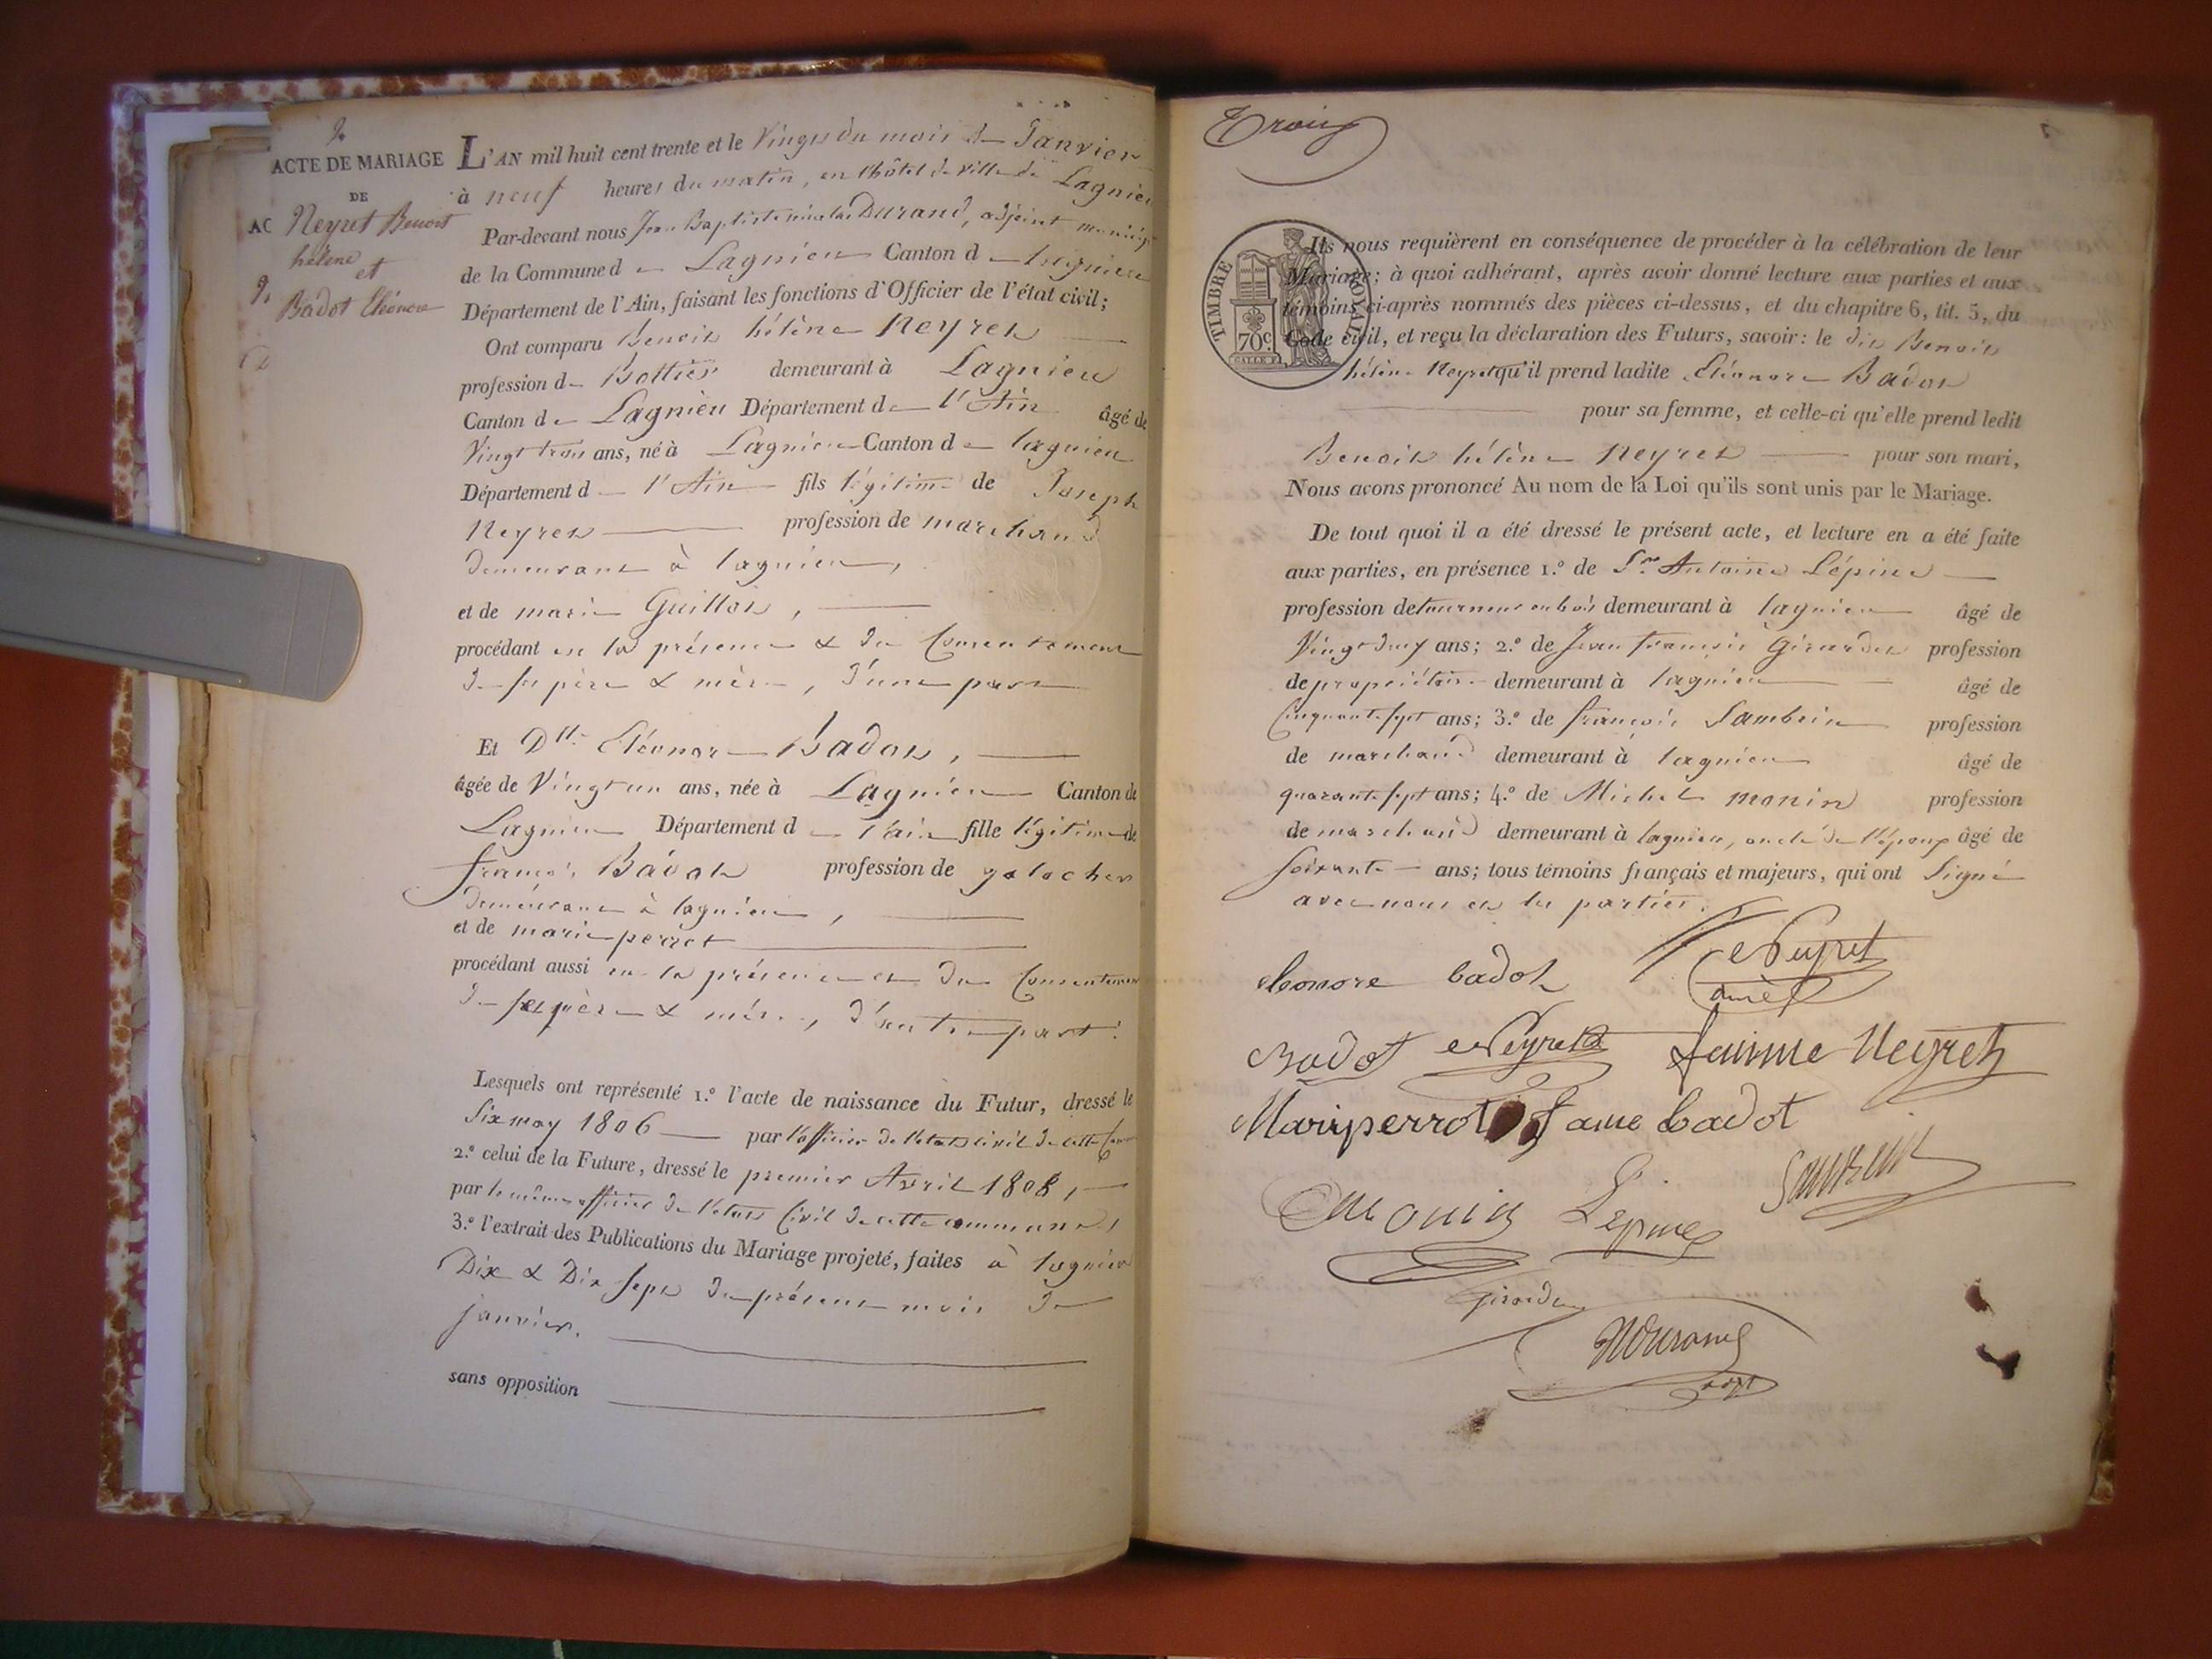 2
ACTE DE MARIAGE
DE
Neyret Benoit
hélène
et
Badot Eléonore
AC
L'AN mil huit cent trente et le Vingt du mois de Janvier
à neuf heures du matin, en l'hôtel de ville de Lagnieu
Par-devant nous Jean Baptiste nicolas DURAND, adjoint municip
de la Commune de Lagnieu Canton de lagnieu
Département de l'Ain, faisant les fonctions d'Officier de l'état civil;
Ont comparu Benoit hélène Neyret
profession de Bottier demeurant à Lagnieu
Canton de Lagnieu Département de l'Ain âgé de
Vingt trois ans, né à Lagnieu Canton de lagnieu
Département de l'Ain fils légitime de Joseph
Neyret profession de marchand
demeurant à lagnieu,
et de marie Guillot,
procédant en la présence & du Consentement
de ses père & mère, d'une part
Et Dlle Eléonore Badot,
âgée de Vingt un ans, née à Lagnieu Canton de
Lagnieu Département de l'ain fille légitime de
françois Badot profession de galocher
demeurant à lagnieu,
et de marie perrot
procédant aussi en la présence et du Consentement
de ses père & mère, d'autre part.
Lesquels ont représenté 1.º l'acte de naissance du Futur, dressé le
Six may 1806 par l'officier de l'état civil de cette Com
2.º celui de la Future, dressé le premier Avril 1808,
par le même officier de l'état Civil de cette commune,
3.º l'extrait des Publications du Mariage projeté, faites à lagnieu
Dix & Dix sept du présent mois de
janvier.
sans opposition
Trois
TIMBRE ROYAL
70c
Ils nous requièrent en conséquence de procéder à la célébration de leur
Mariage; à quoi adhérant, après avoir donné lecture aux parties et aux
témoins ci-après nommés des pièces ci-dessus, et du chapitre 6, tit. 5, du
Code civil, et reçu la déclaration des Futurs, savoir: le dit Benoit
hélène Neyret qu'il prend ladite Eléonore Badot
pour sa femme, et celle-ci qu'elle prend ledit
Benoit hélène Neyret pour son mari,
Nous avons prononcé Au nom de la Loi qu'ils sont unis par le Mariage.
De tout quoi il a été dressé le présent acte, et lecture en a été faite
aux parties, en présence 1.º de Sr Antoine Lépine
profession de tourneur en bois demeurant à lagnieu âgé de
Vingt deux ans; 2.º de Jean françois Girardet profession
de propriétaire demeurant à lagnieu âgé de
Cinquante sept ans; 3.º de françois Sambein profession
de marchand demeurant à lagnieu âgé de
quarante sept ans; 4.º de Michel monin profession
de marchand demeurant à lagnieu, oncle de l'époux âgé de
soixante ans; tous témoins français et majeurs, qui ont Signé
avec nous et les parties.
eleonore badot Neyret
ainé
Badot Neyret faimme Neyret
Marieperrot fame badot
Monin Lepine
Girardet
NDurand
adjt